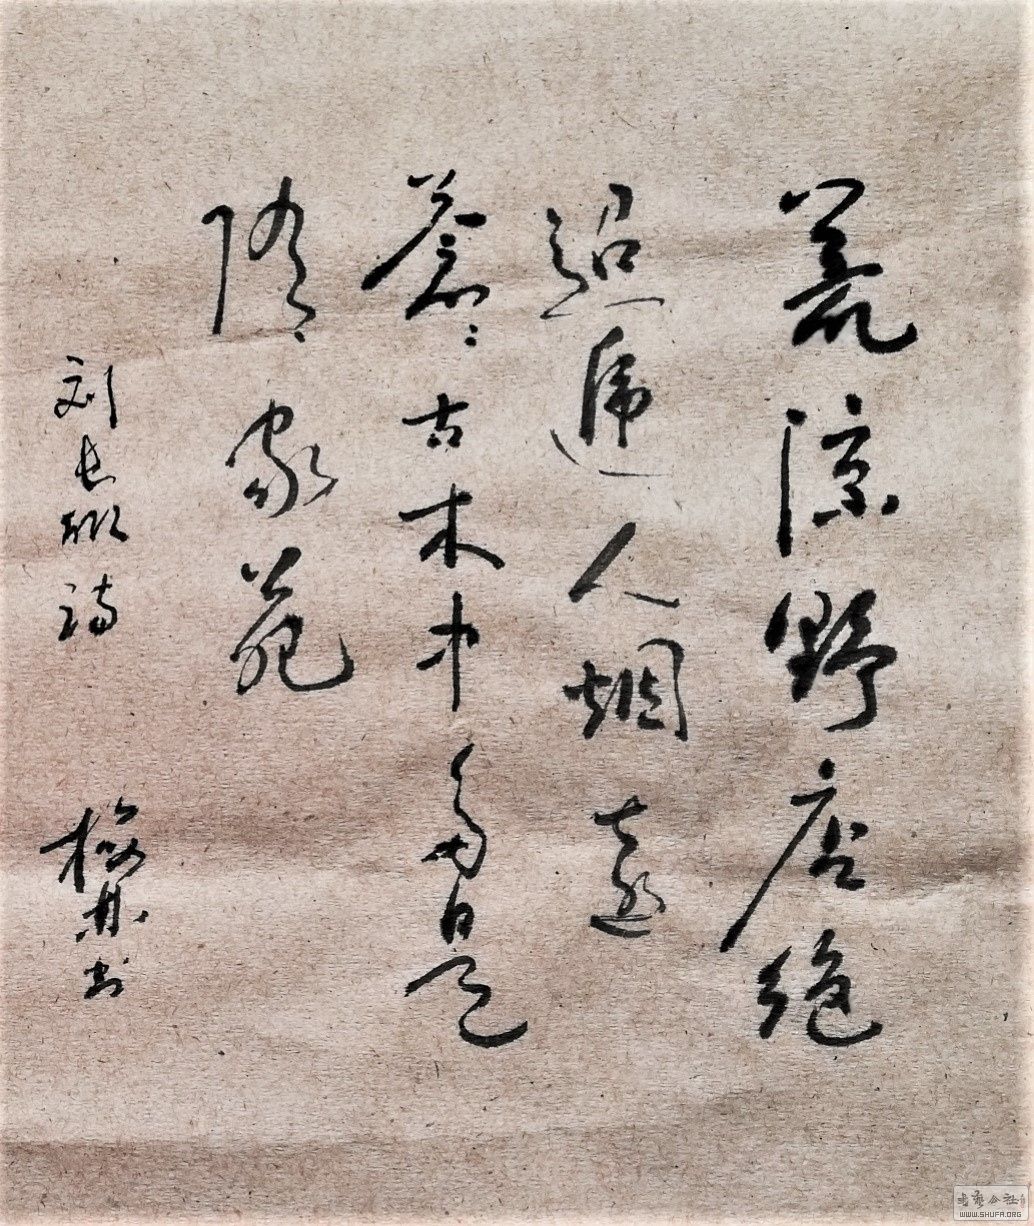 荒凉野店绝
迢递人烟远
苍々古木中多是
隋家苑
刘长卿诗
梅林书
WWW.SHUFA.ORG